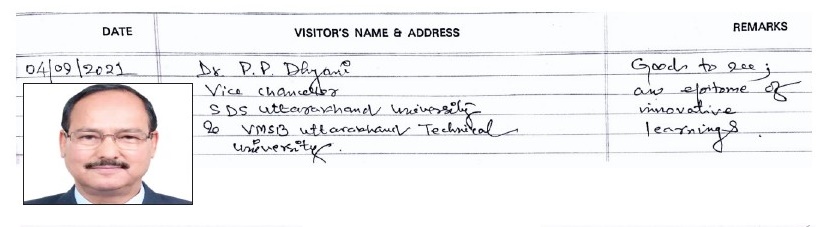 DATE VISITOR'S NAME & ADDRESS REMARKS
04/09/2021 Dr. P.P. Dhyani Goods to see;
Vice chancellor an epitome of
SDS Uttarakhand University innovative
& VMSB Uttarakhand Technical learnings.
University.